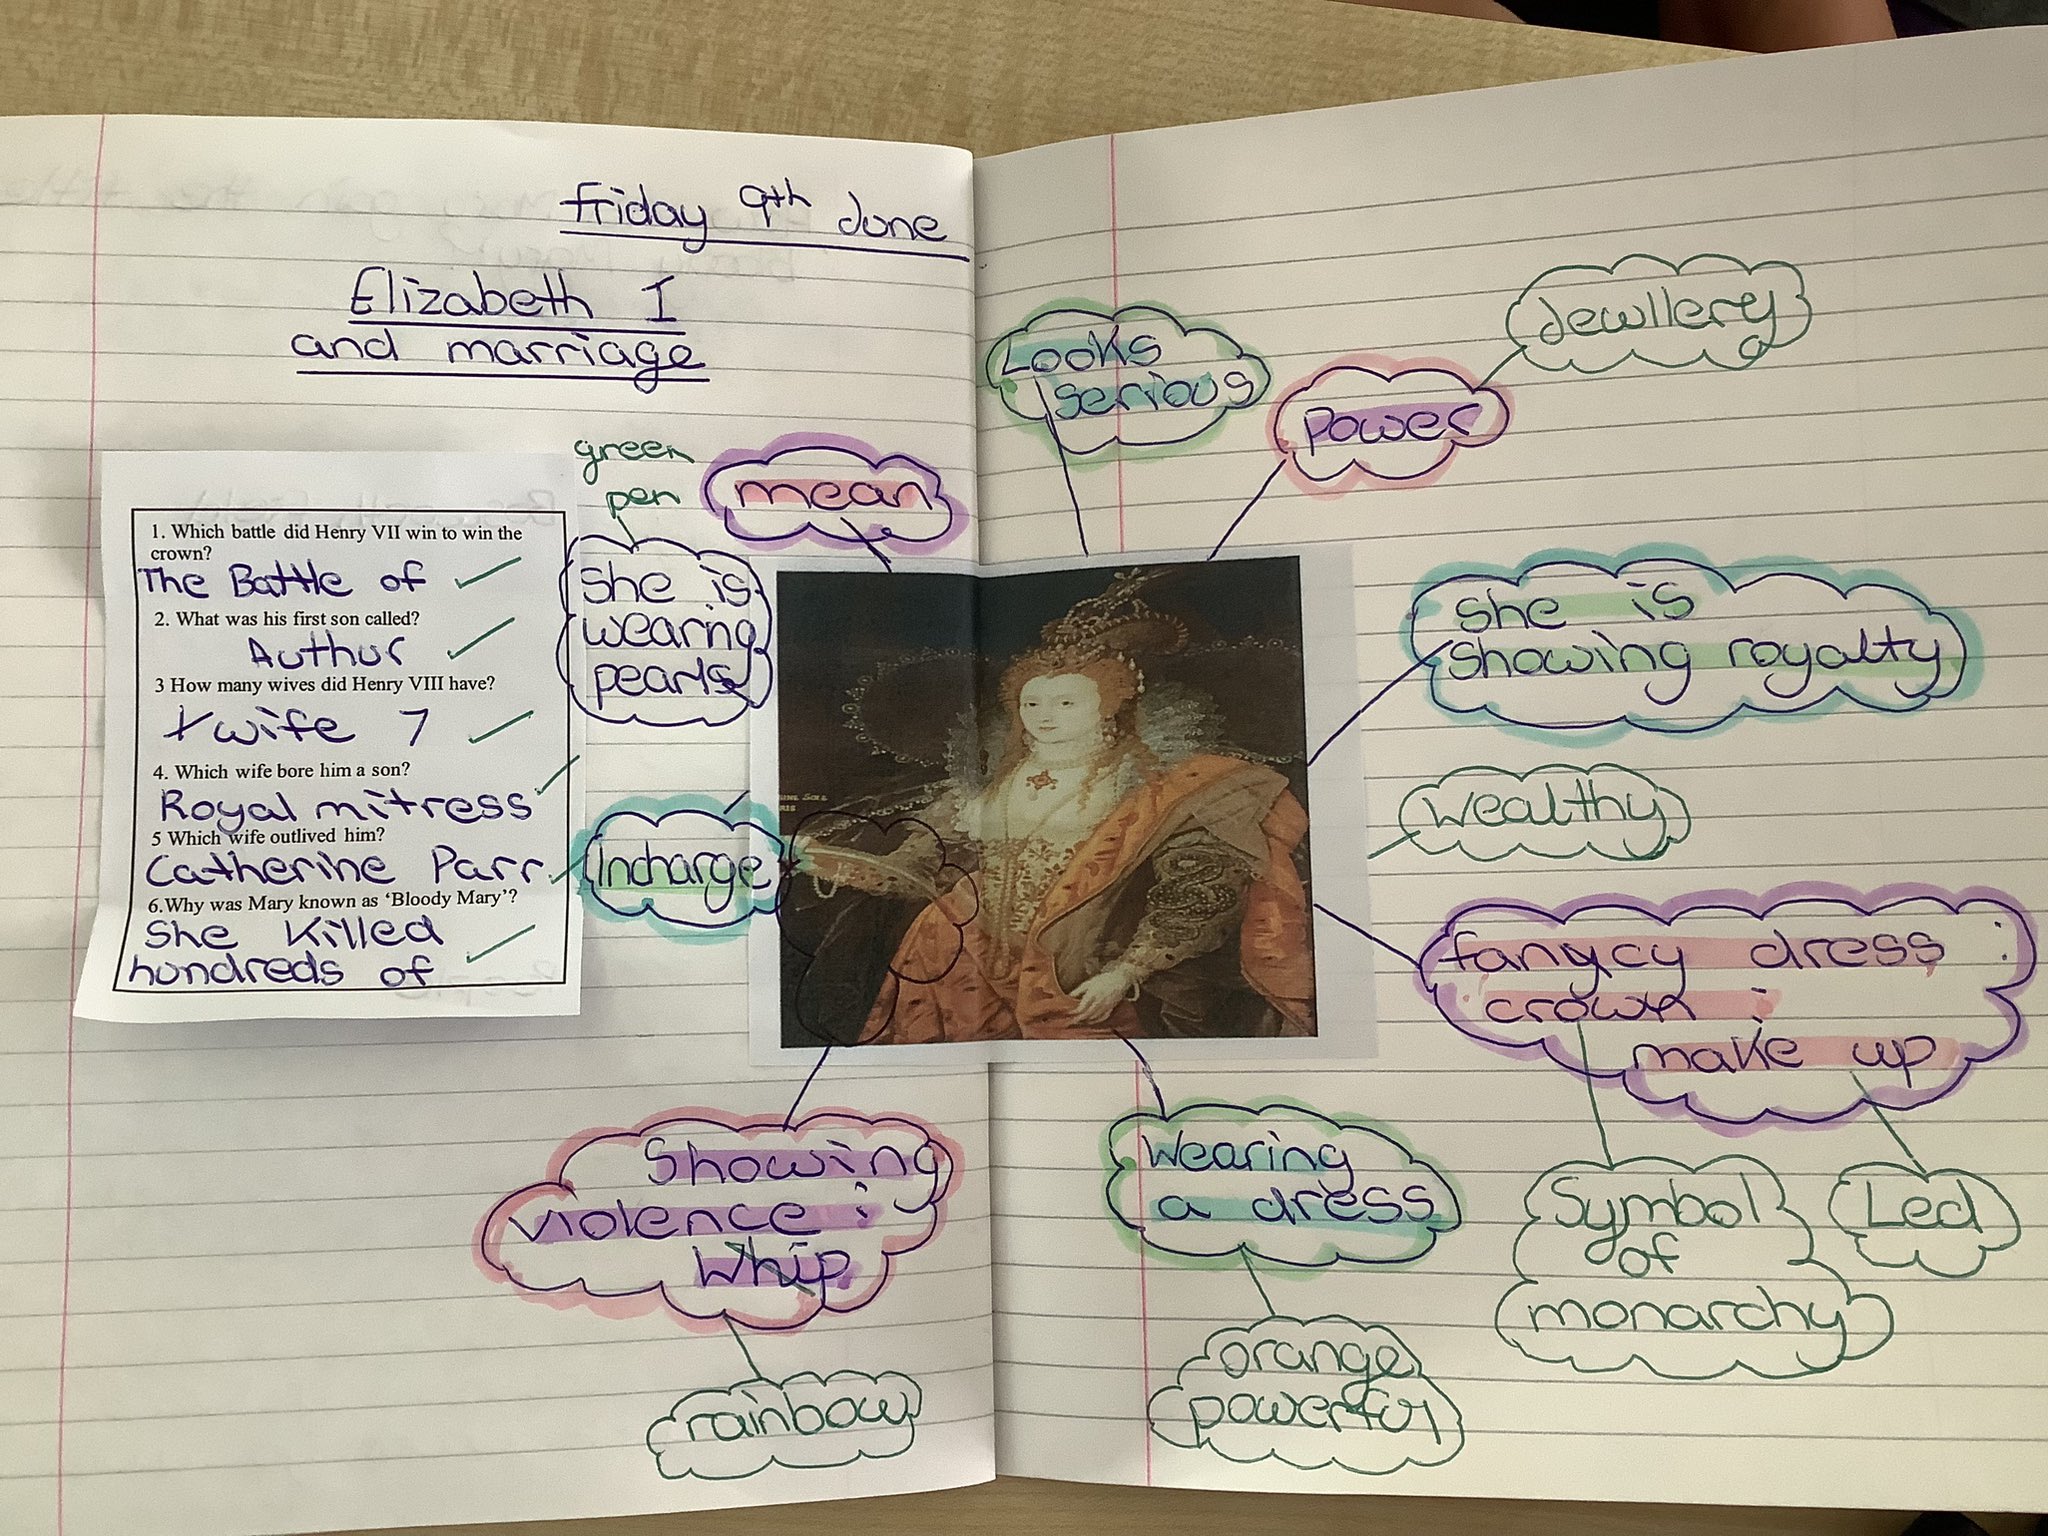 Friday 9th June
Elizabeth I
and marriage
1. Which battle did Henry VII win to win the
crown?
The Battle of
2. What was his first son called?
Authur
3 How many wives did Henry VIII have?
wife 7
4. Which wife bore him a son?
Royal mitress
5 Which wife outlived him?
Catherine Parr
6.Why was Mary known as ‘Bloody Mary’?
She Killed
hundreds of
green
pen
She is
wearing
pearls
mean
Incharge
Showing
violence :
Whip
rainbow
Looks
serious
power
Jewllery
She is
showing royalty
Wealthy
fancy dress
crown :
make up
Symbol
of
monarchy
Led
Wearing
a dress
orange
powerful